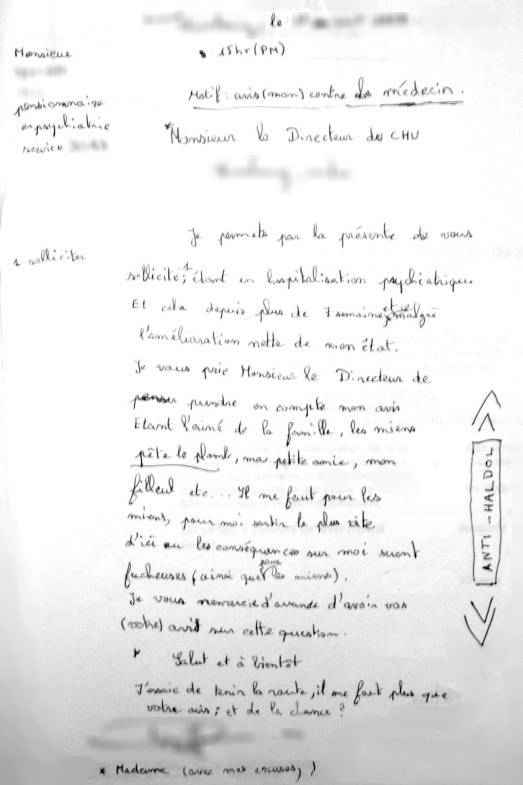 le
15hr (PM)
Monsieur
Motif : avis (mon) contre le médecin.
pensionnaire
en psychiatrie
service
* Monsieur le Directeur du CHU
Je permets par la présente de vous
1 solliciter
sollicité,1 étant en hospitalisation psychiatrique.
Et cela depuis plus de 7 semaines et ce malgré
l'amélioration nette de mon état.
Je vous prie Monsieur le Directeur de
penser prendre en compte mon avis
Etant l'ainé de la famille, les miens
pète le plomb, ma petite amie, mon
filleul etc... Il me faut pour les
miens, pour moi sortir le plus vite
d'ici ou les conséquences sur moi seront
facheuses (ainsi que pour les miens).
Je vous remercie d'avance d'avoir vos
(votre) avis sur cette question.
Salut et à bientôt
J'essaie de tenir la route, il me faut plus que
votre avis ; et de la chance ?
* Madame (avec mes excuses,)
ANTI-HALDOL